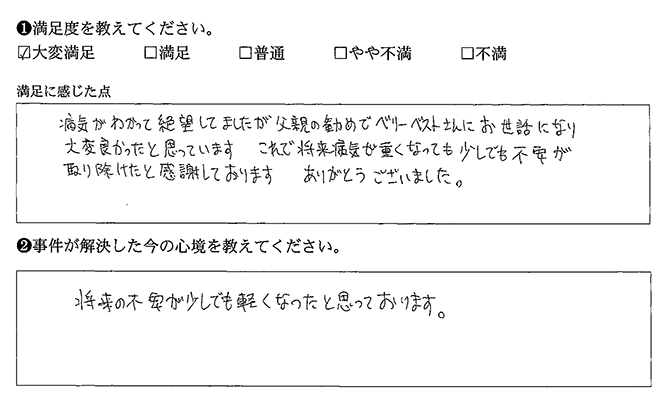 ❶満足度を教えてください。
☑大変満足 □満足 □普通 □やや不満 □不満
満足に感じた点
病気がわかって絶望してましたが父親の勧めでベリーベストさんにお世話になり
大変良かったと思っています これで将来病気が重くなっても少しでも不安が
取り除けたと感謝しております ありがとうございました。
❷事件が解決した今の心境を教えてください。
将来の不安が少しでも軽くなったと思っております。